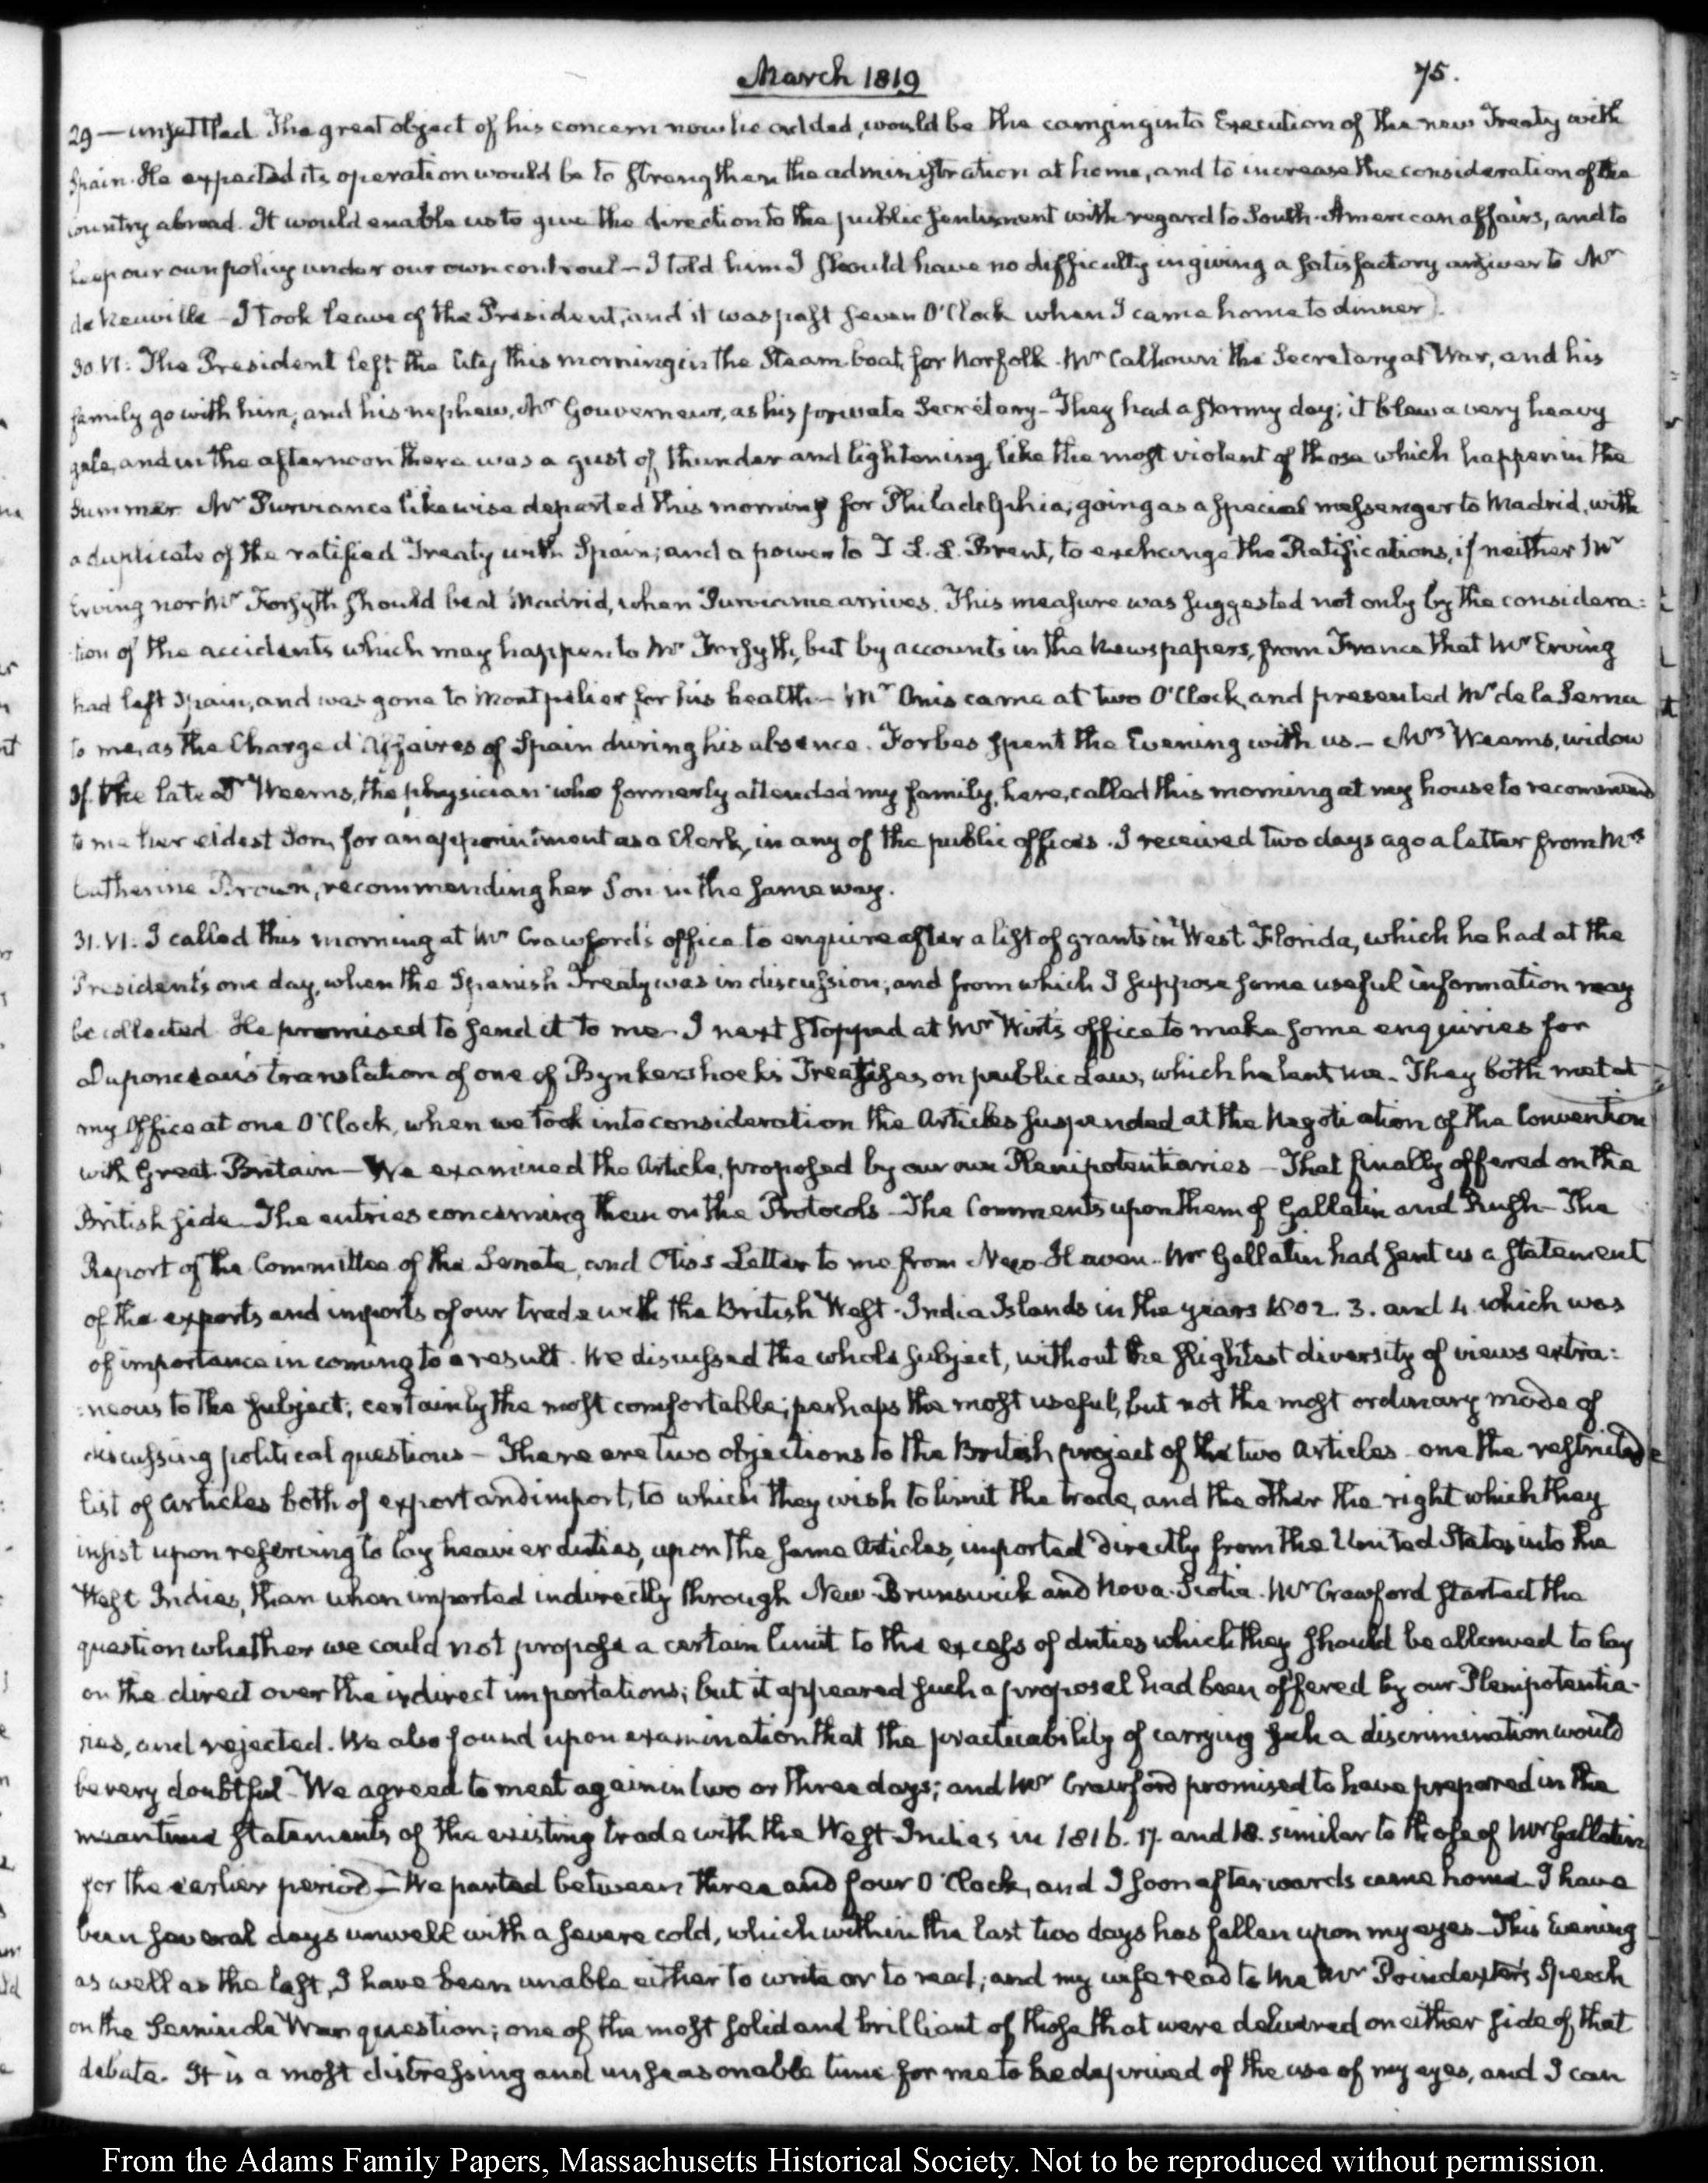 March 1819
75.
29 — unsettled. The great object of his concern now he added, would be the carrying into Execution of the new Treaty with
Spain. He expected its operation would be to strengthen the administration at home, and to increase the consideration of the
country abroad. It would enable us to give the direction to the public sentiment with regard to South-American affairs, and to
keep our own policy under our own controul — I told him I should have no difficulty in giving a satisfactory answer to Mr
de Neuville — I took leave of the President, and it was past seven O'Clock when I came home to dinner.
30. VI: The President left the City this morning in the Steam-boat, for Norfolk. Mr Calhoun the Secretary at War, and his
family go with him; and his nephew, Mr Gouverneur, as his private Secretary — They had a stormy day; it blew a very heavy
gale, and in the afternoon there was a gust of thunder and lightening, like the most violent of those which happen in the
Summer. Mr Purviance likewise departed this morning for Philadelphia; going as a special messenger to Madrid, with
a duplicate of the ratified Treaty with Spain; and a power to T. L. L. Brent, to exchange the Ratifications, if neither Mr
Erving nor Mr Forsyth should be at Madrid, when Purviance arrives. This measure was suggested not only by the considera:
:tion of the accidents which may happen to Mr Forsyth, but by accounts in the Newspapers, from France that Mr Erving
had left Spain, and was gone to Montpelier for his health — Mr Onis came at two O'Clock, and presented Mr de la Serna
to me, as the Chargé d'Affaires of Spain during his absence. Forbes spent the Evening with us — Mrs Weems, widow
of the late Dr Weems, the physician who formerly attended my family, here, called this morning at my house to recommend
to me her eldest Son, for an appointment as a Clerk, in any of the public offices. I received two days ago a letter from Mrs
Catherine Brown, recommending her Son in the same way.
31. VI: I called this morning at Mr Crawford's office to enquire after a list of grants in West Florida, which he had at the
President's one day, when the Spanish Treaty was in discussion; and from which I suppose some useful information may
be collected. He promised to send it to me. I next stopped at Mr Wirt's office to make some enquiries for
Duponceau's translation of one of Bynkershoek's Treatises on public Law, which he lent me. They both met at
my Office at one O'Clock, when we took into consideration the Articles suspended at the Negotiation of the Convention
with Great-Britain — We examined the Article, proposed by our own Plenipotentiaries — That finally offered on the
British side — The entries concerning them on the Protocols — The Comments upon them of Gallatin and Rush — The
Report of the Committee of the Senate, and Otis's Letter to me from New-Haven. Mr Gallatin had sent us a statement
of the exports and imports of our trade with the British West-India Islands in the years 1802. 3. and 4. which was
of importance in coming to a result. We discussed the whole subject, without the slightest diversity of views extra:
:neous to the subject; certainly the most comfortable; perhaps the most useful, but not the most ordinary mode of
discussing political questions — There are two objections to the British project of the two Articles — one the restricted
list of articles both of export and import, to which they wish to limit the trade, and the other the right which they
insist upon reserving to lay heavier duties, upon the same Articles, imported directly from the United States into the
West Indies, than when imported indirectly through New-Brunswick and Nova-Scotia. Mr Crawford started the
question whether we could not propose a certain limit to the excess of duties which they should be allowed to lay
on the direct over the indirect importations; but it appeared such a proposal had been offered by our Plenipotentia-
ries, and rejected. We also found upon examination that the practicability of carrying such a discrimination would
be very doubtful — We agreed to meet again in two or three days; and Mr Crawford promised to have prepared in the
meantime statements of the existing trade with the West-Indies in 1816. 17. and 18. similar to those of Mr Gallatin
for the earlier period — We parted between three and four O'Clock, and I soon afterwards came home. I have
been several days unwell with a severe cold, which within the last two days has fallen upon my eyes — This Evening
as well as the last, I have been unable either to write or to read; and my wife read to me Mr Poindexter's Speech
on the Seminole War question; one of the most solid and brilliant of those that were delivered on either side of that
debate. It is a most distressing and unseasonable time for me to be deprived of the use of my eyes, and I can
From the Adams Family Papers, Massachusetts Historical Society. Not to be reproduced without permission.